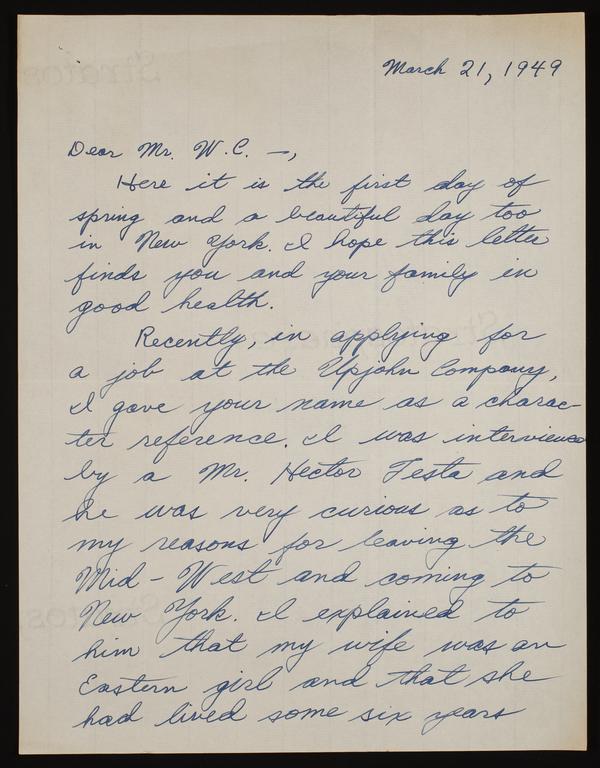 March 21, 1949
Dear Mr. W.C. —,
Here it is the first day of
spring and a beautiful day too
in New York. I hope this letter
finds you and your family in
good health.
Recently, in applying for
a job at the Upjohn Company,
I gave your name as a charac-
ter reference. I was interviewed
by a Mr. Hector Testa and
he was very curious as to
my reasons for leaving the
Mid-West and coming to
New York. I explained to
him that my wife was an
Eastern girl and that she
had lived some six years